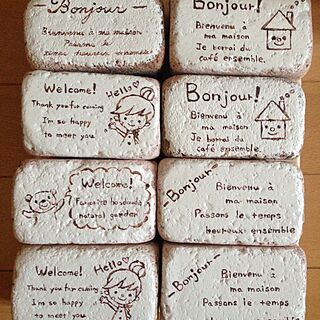 -Bonjour-
Bienvenu à ma maison
Passons le
temps heureux ensemble
Bonjour!
Bienvenu à
ma maison
Je borrai du
café ensemble.
Welcome!
Hello
Thank you for coming
I'm so happy
to meet you
Bonjour!
Bienvenu à
ma maison
Je borrai du
café ensemble.
Welcome!
Favorite
natural garden
-Bonjour-
Bienvenu à
ma maison
Passons le temps
heureux ensemble
Welcome!
Hello
Thank you for coming
I'm so happy
to meet you
-Bonjour-
Bienvenu à
ma maison
Passons le temps
ensemble